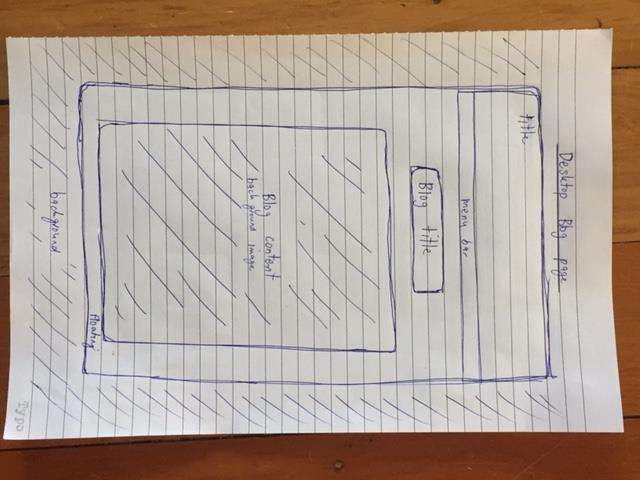 Desktop Blog page
title
menu bar
Blog title
Blog content
back ground image
floating
background
Typo